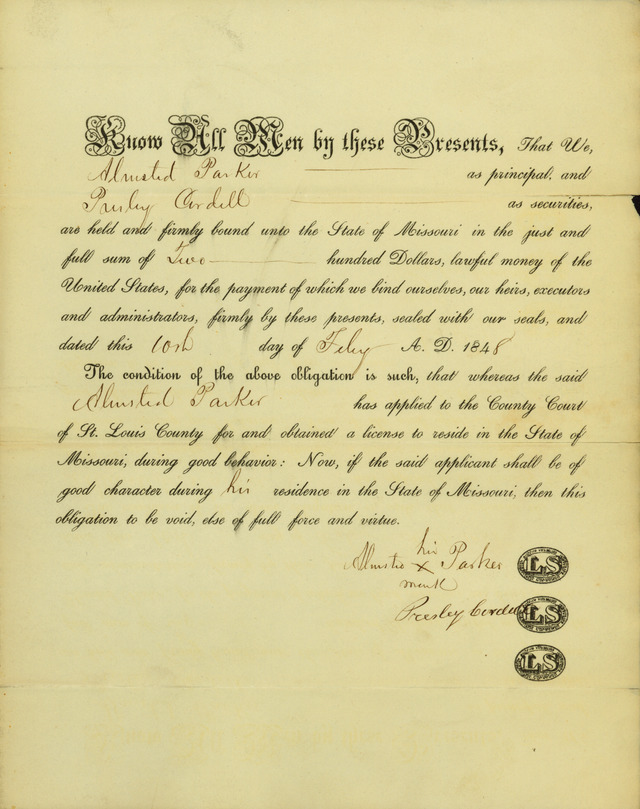 Know All Men by these Presents, That We,
Almsted Parker as principal, and
Presley Cordell as securities,
are held and firmly bound unto the State of Missouri in the just and
full sum of Two hundred Dollars, lawful money of the
United States, for the payment of which we bind ourselves, our heirs, executors
and administrators, firmly by these presents, sealed with our seals, and
dated this 10th day of Feby A. D. 1848
The condition of the above obligation is such, that whereas the said
Almsted Parker has applied to the County Court
of St. Louis County for and obtained a license to reside in the State of
Missouri, during good behavior: Now, if the said applicant shall be of
good character during his residence in the State of Missouri, then this
obligation to be void, else of full force and virtue.
his
Almsted X Parker LS
mark
Presley Cordell LS
LS